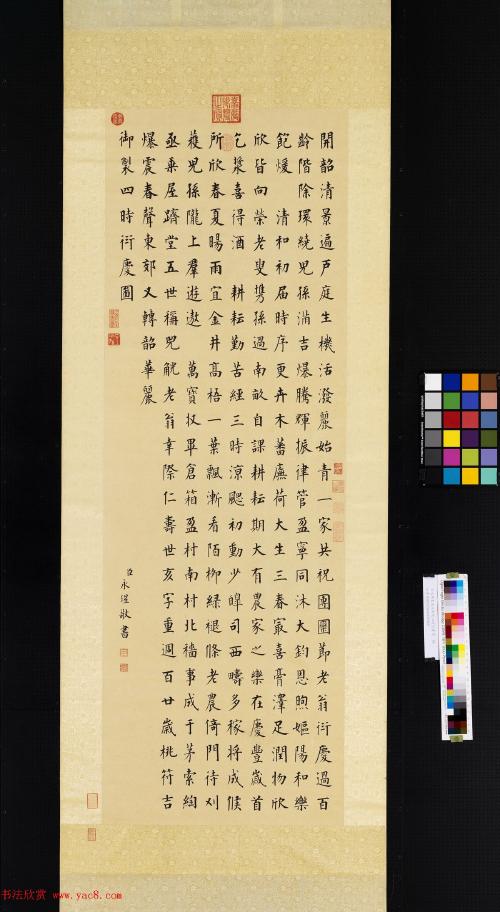 開韶清景遍戶庭生機活潑麗始青一家共祝團圞節老翁衍慶過百
齡階除環繞兒孫滿吉爆騰輝振律管盈寧同沐大鈞恩煦嫗陽和樂
範煖 清和初屆時序更卉木蕃廡荷大生三春冣喜膏澤足潤物欣
欣皆向榮老叟攜孫過南畝自課耕耘期大有農家之樂在慶豐歲首
乞漿喜得酒 耕耘勤苦經三時涼颸初動少皞司西疇多稼將成候
所欣春夏暘雨宜金井高梧一葉飄漸看陌柳綠褪條老農倚門待刈
穫兒孫隴上羣遊遨 萬寶收畢倉箱盈村南村北穡事成于茅索綯
亟乘屋躋堂五世稱兕觥老翁幸際仁壽世亥字重週百廿歲桃符吉
爆震春聲東郊又轉韶華麗
御製四時衍慶圖
臣永瑆敬書
书法欣赏 www.yac8.com